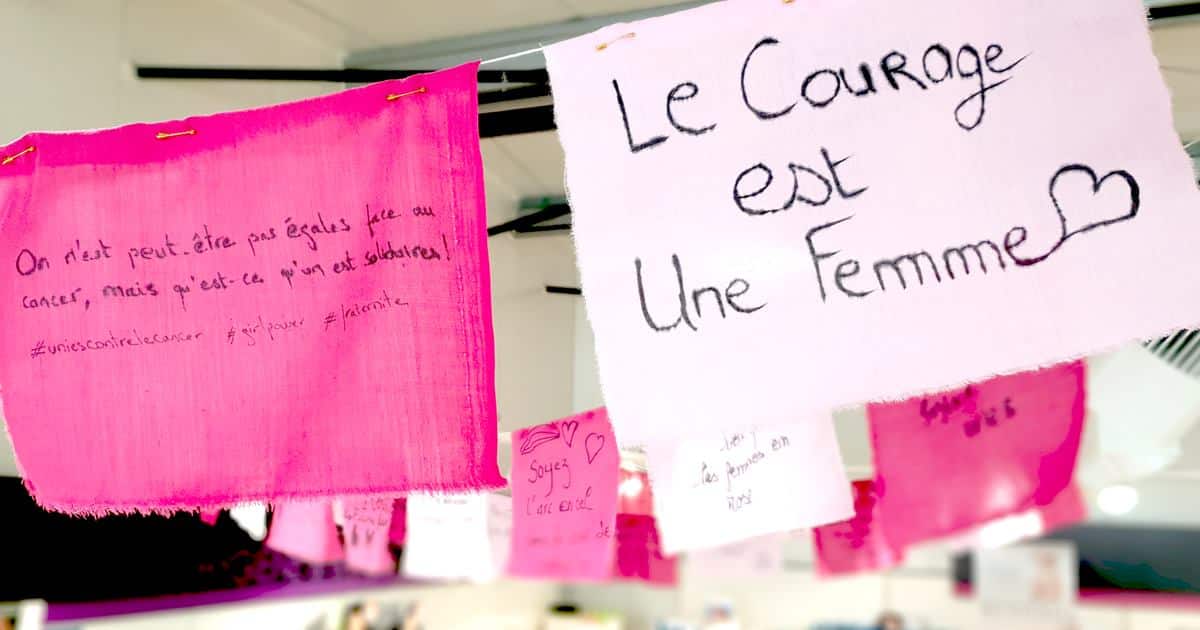 On n'est peut-être pas égales face au
cancer, mais qu'est-ce qu'on est solidaires!
#uniescontrelecancer #girlpower #fraternite
Le Courage
est
Une Femme
Soyez
l'arc en ciel
de
les femmes en
Rose
Soyons